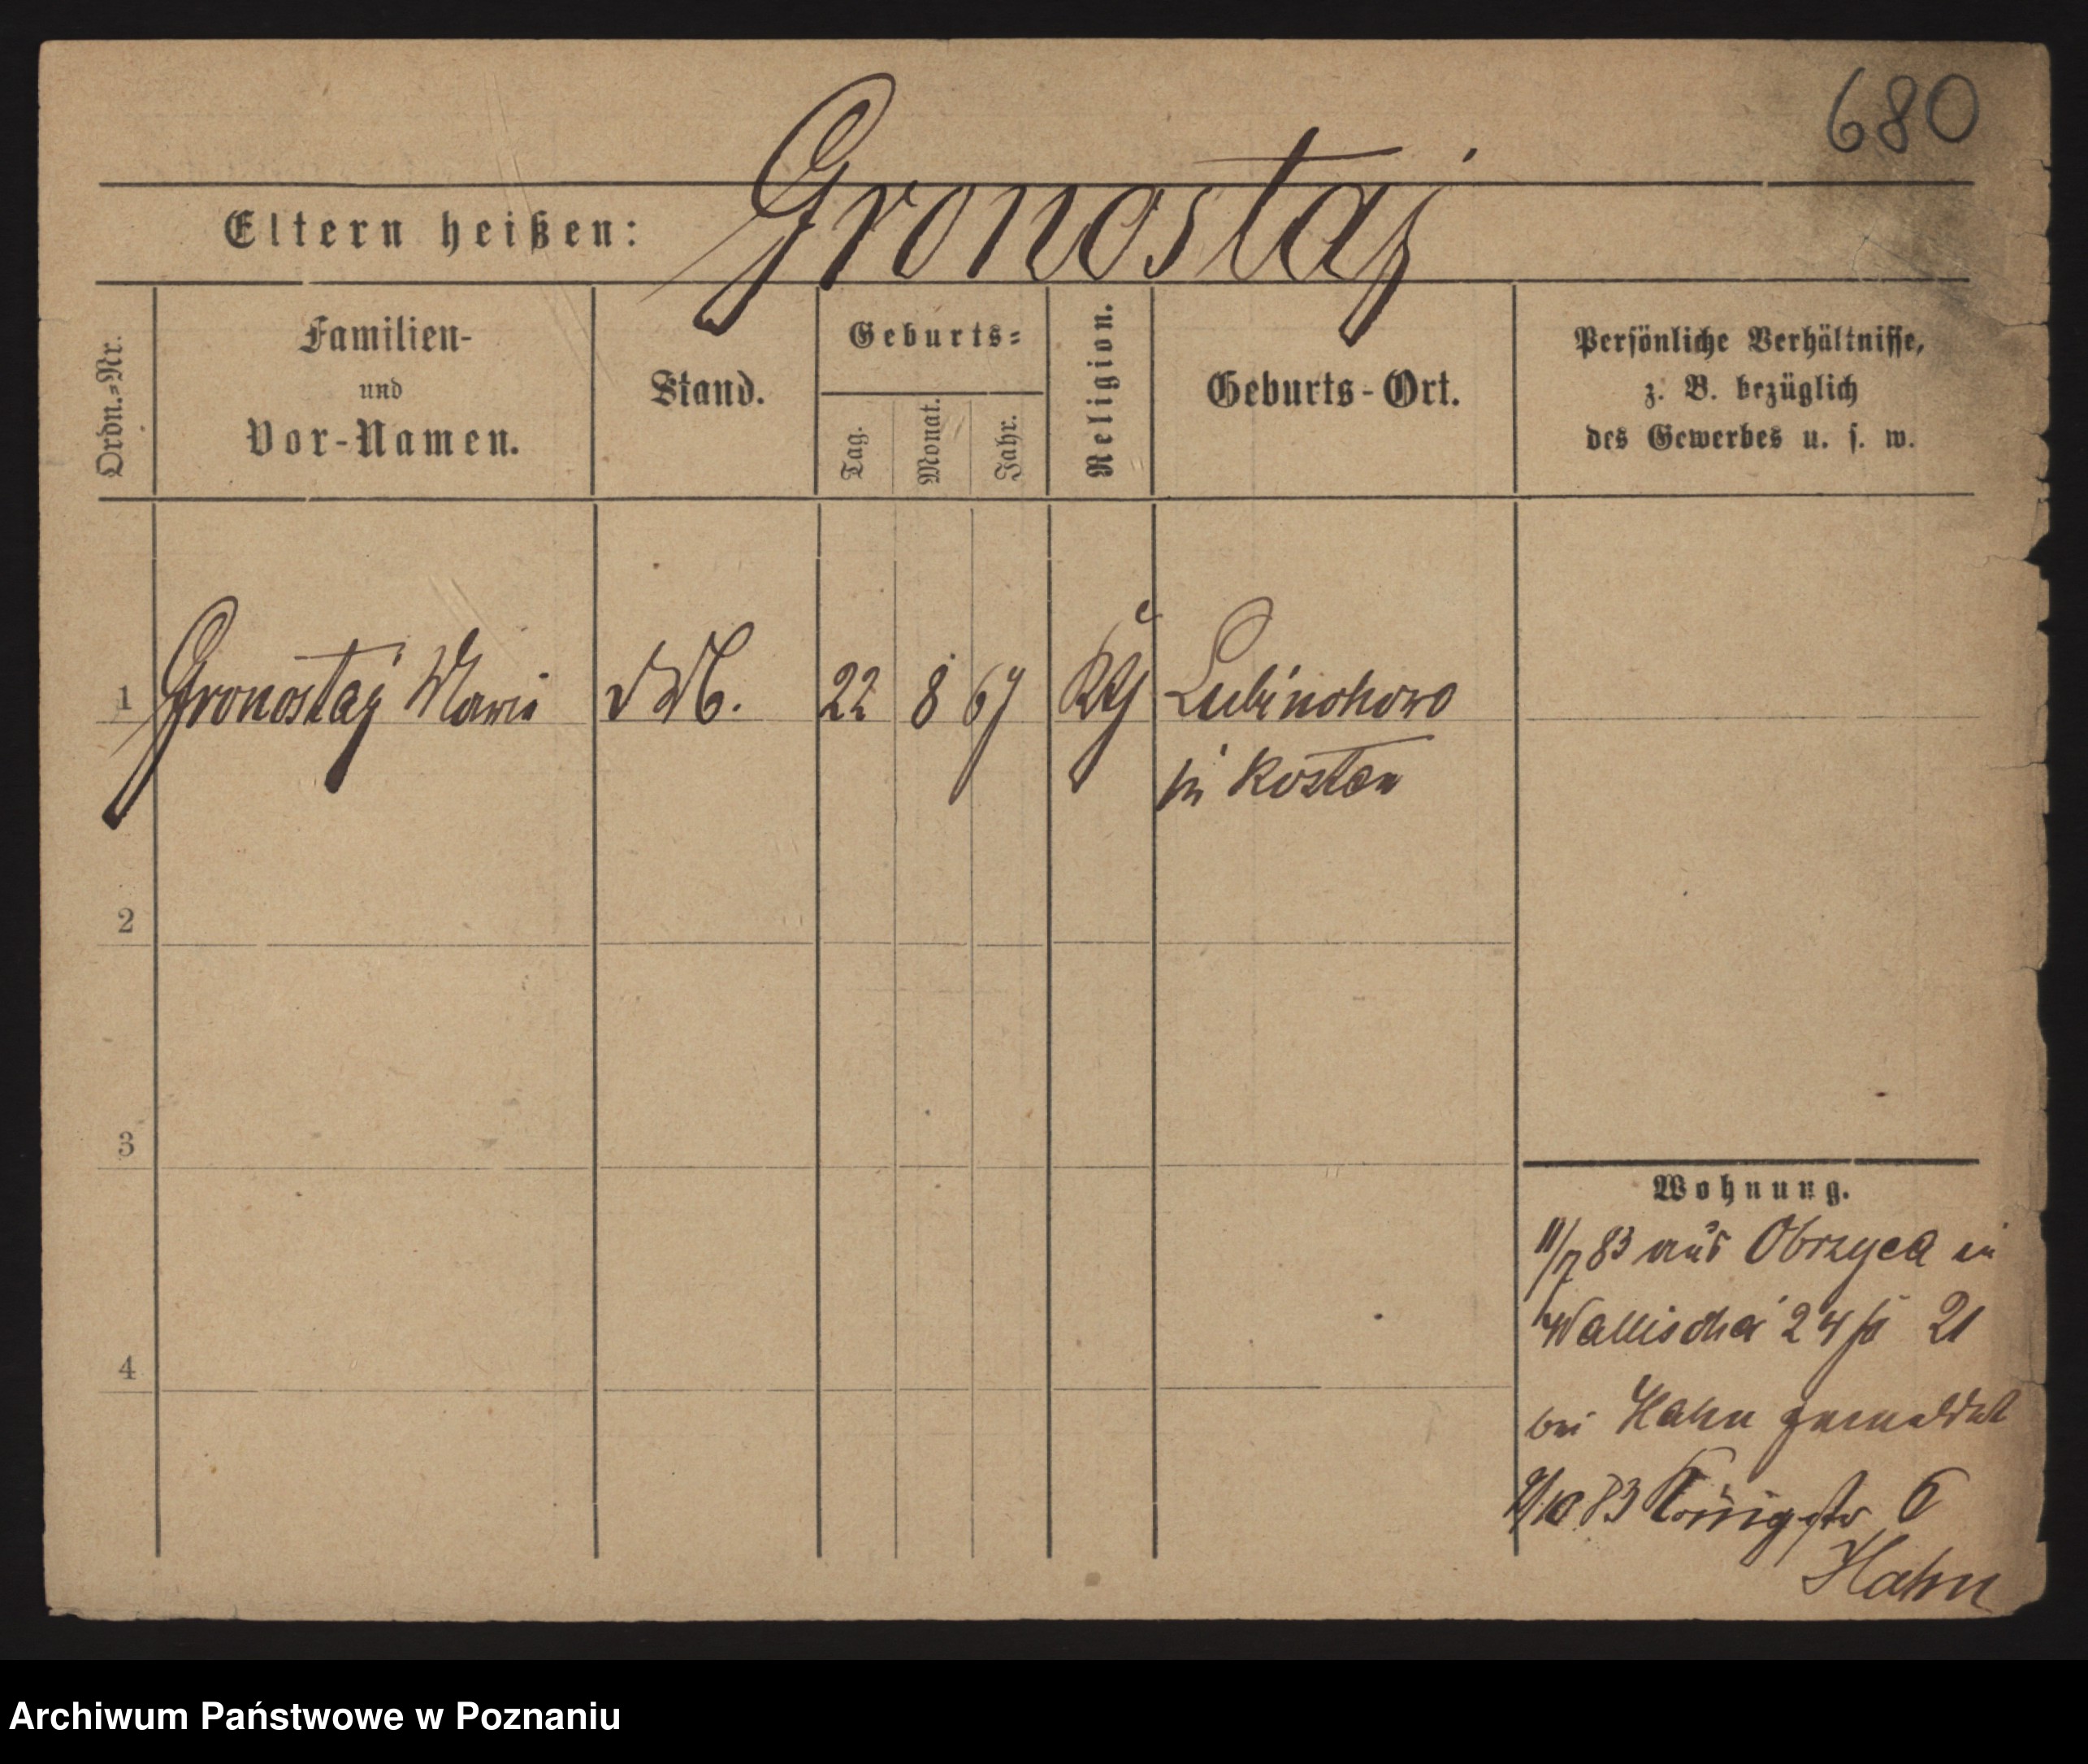 680
Gronostaj
Eltern heißen:
Ordn.=Nr.
Familien-
und
Vor-Namen.
Stand.
Geburts=
Tag.
Monat.
Jahr.
Religion.
Geburts-Ort.
Persönliche Verhältnisse,
z. B. bezüglich
des Gewerbes u. s. w.
1 Gronostaj Marie 22 8 67
Kosten
2
3
4
Wohnung.
11/7 83 aus Obrzyca in
Wallischei 24 21
bei Hahn gemeldet
83 Königstr 6
Hahn
Archiwum Państwowe w Poznaniu